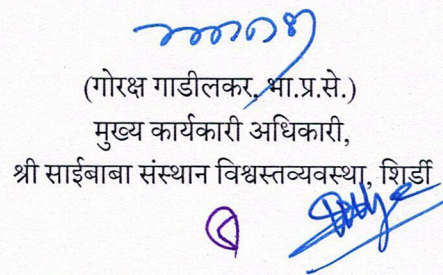 (गोरक्ष गाडीलकर, भा.प्र.से.)
मुख्य कार्यकारी अधिकारी,
श्री साईबाबा संस्थान विश्वस्तव्यवस्था, शिर्डी